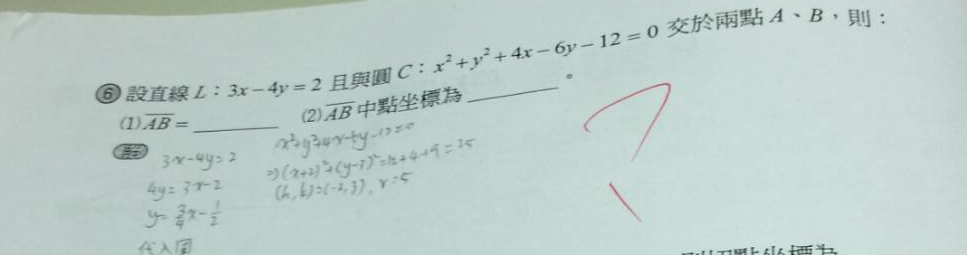 ⑥ 設直線 L：3x－4y＝2 且與圓 C：x²＋y²＋4x－6y－12＝0 交於兩點 A、B，則：
(1) AB＝______ (2) AB 中點坐標為______。
解
3x-4y=2
4y=3x-2
y=3/4x-1/2
代入圓
x²+y²+4x-6y-12=0
⇒(x+2)²+(y-3)²=12+4+9=25
(h,k)=(-2,3), r=5